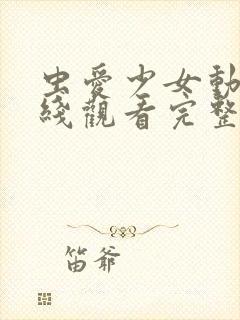 虫愛少女動
綫觀看完整
笛爺